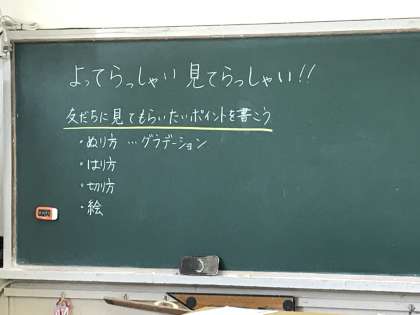 よってらっしゃい 見てらっしゃい!!
友だちに見てもらいたいポイントを書こう
・ぬり方 …グラデーション
・はり方
・切り方
・絵